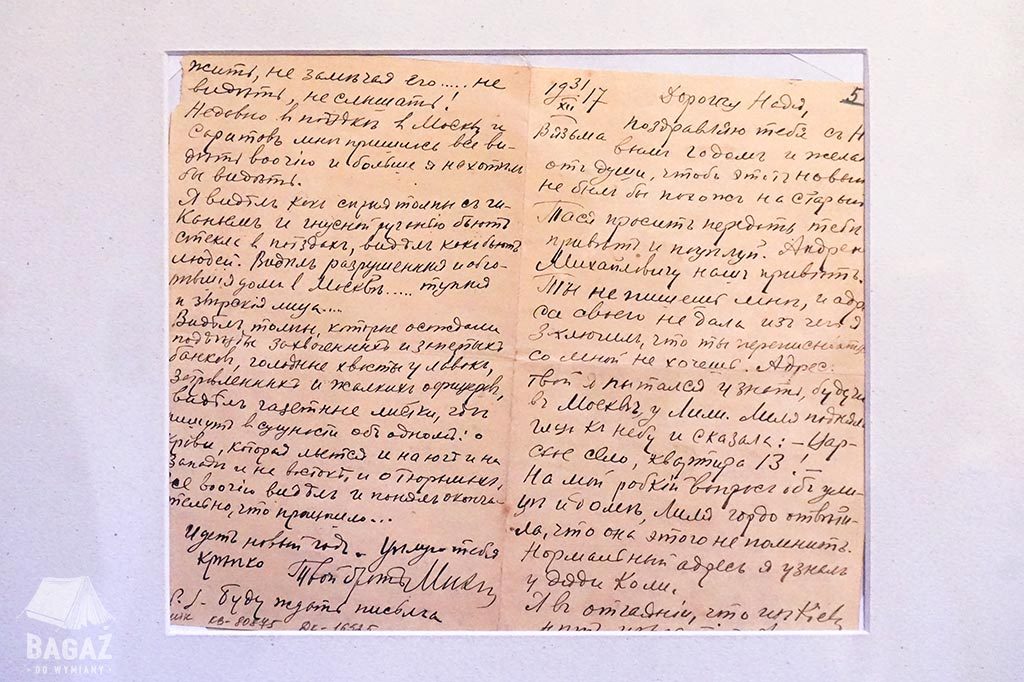 жить, не замѣчая его..... не
видѣть, не слышать!
Недавно в поѣздкѣ в Москву и
Саратов мнѣ пришлось все ви-
дѣть воочію и больше я не хотѣл
бы видѣть.
Я видѣл как сѣрыя толпы съ ги-
каньем и гнусной руганью бьют
стекла в поѣздах, видѣл как бьют
людей. Видѣл разрушенныя и обго-
рѣвшія дома в Москвѣ..... тупыя
и звѣрскія лица....
Видѣл толпы, которые осаждали
подъѣзды захваченных и запертых
банков, голодные хвосты у лавок,
затравленных и жалких офицеров,
видѣл газетные листки, где
пишут в сущности об одном: о
крови, которая льется и на югѣ и на
западѣ и на востокѣ, и о тюрьмах.
Все воочію видѣл и понял оконча-
тельно, что произошло...
Идетъ новый годъ. Цѣлую тебя
крѣпко
Твой братъ Михаил
P.S. Буду ждать письма
КВ-80875
5
1931/XII17
Дорогая Надя,
Вязьма
поздравляю тебя съ Н
вымъ годомъ и желаю
отъ души, чтобы этотъ новый
не был бы похож на старый
Тася просит передать тебѣ
привѣт и поцѣлуй. Андрею
Михайловичу наш привѣтъ.
Ты не пишешь мнѣ, и адре
са своего не дала из чего я
заключил, что ты переписываться
со мной не хочешь. Адрес
твой я пытался узнать, будучи
въ Москвѣ, у Лили. Лиля подняла
глаза къ небу и сказала: - Цар-
ское село, квартира 13!
На мой робкій вопрос об ули-
цѣ и домѣ, Лиля гордо отвѣти-
ла, что она этого не помнитъ.
Нормальный адресъ я узнал
у дяди Коли.
Я въ отчаяніи, что из Кіева
BAGAŻ
DO WYMIANY